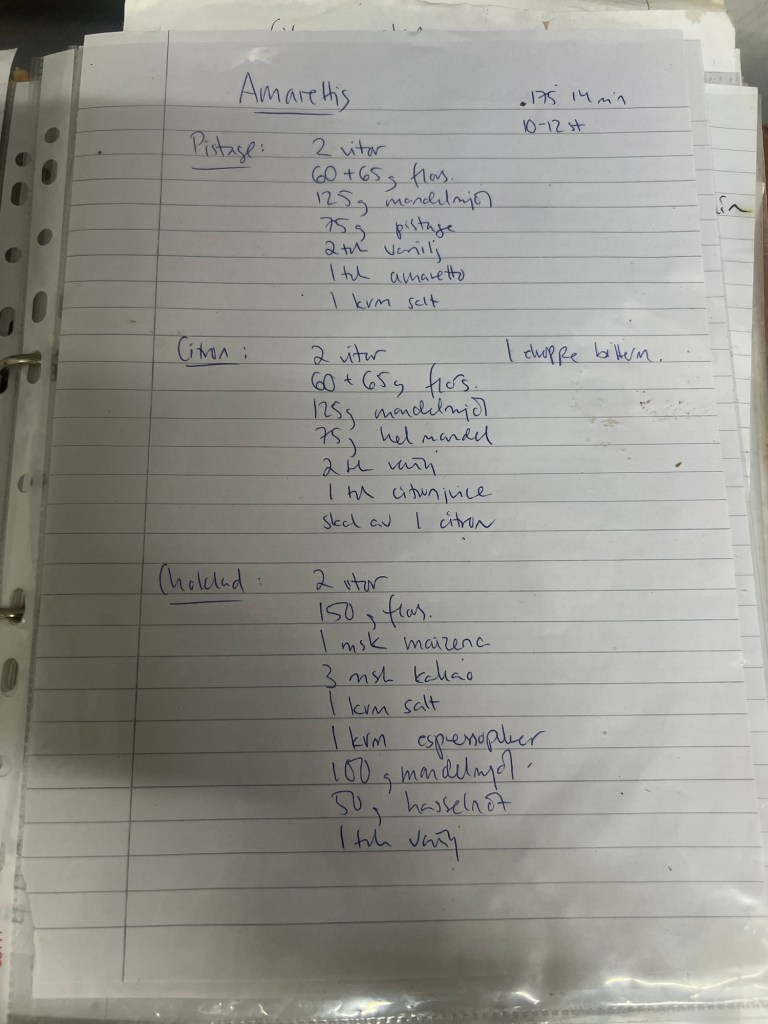 Amarettis
175 14 min
10-12 st
Pistage: 2 vitor
60+65g flors.
125g mandelmjöl
75g pistage
2 tsk vanilj
1 tsk amaretto
1 krm salt
Citron: 2 vitor 1 droppe bitterm.
60+65g flors.
125g mandelmjöl
75g hel mandel
2 tsk vanilj
1 tsk citronjuice
skal av 1 citron
Choklad: 2 vitor
150g flors.
1 msk maizena
3 msk kakao
1 krm salt
1 krm espressopulver
100g mandelmjöl
50g hasselnöt
1 tsk vanilj